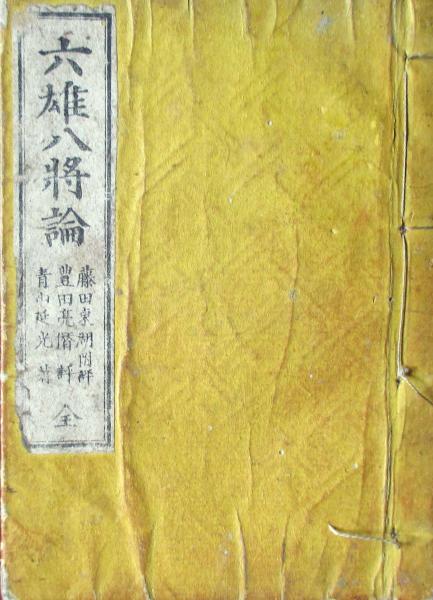 六雄八將論
藤田東湖閲評
豊田亮僭評
青山延光著
全